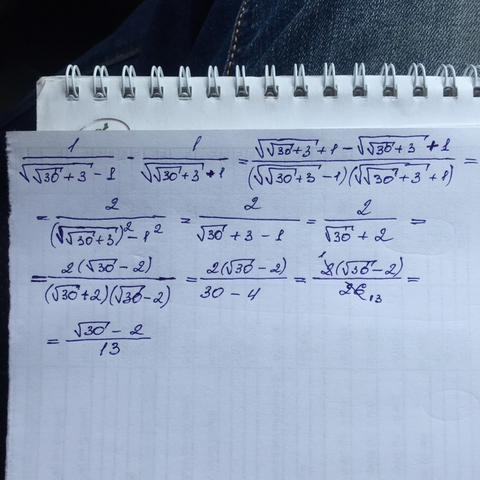 1/(√(√30 + 3) - 1) - 1/(√(√30 + 3) + 1) = (√(√30 + 3) + 1 - √(√30 + 3) + 1)/((√(√30 + 3) - 1)(√(√30 + 3) + 1)) =
= 2/((√(√30 + 3))² - 1²) = 2/(√30 + 3 - 1) = 2/(√30 + 2) =
= 2(√30 - 2)/((√30 + 2)(√30 - 2)) = 2(√30 - 2)/(30 - 4) = ¹2(√30 - 2)/26₁₃ =
= (√30 - 2)/13